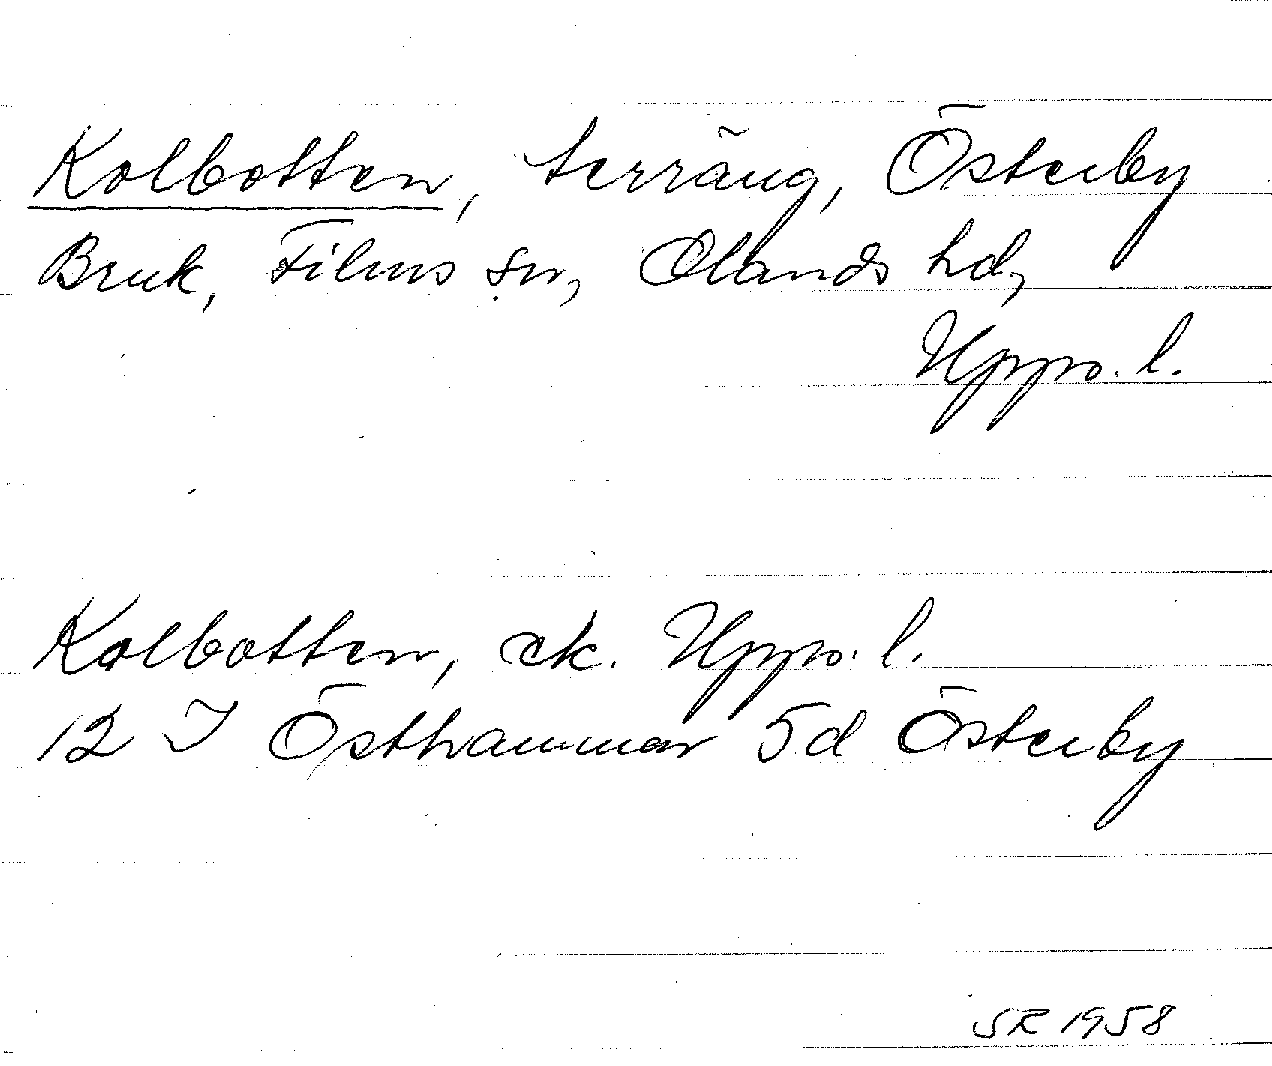 Kolbotten, terräng, Österby
Bruk, Films sn, Olands hd,
Upps. l.
Kolbotten, ek. Upps. l.
12 I Östhammar 5d Österby
SR 1958